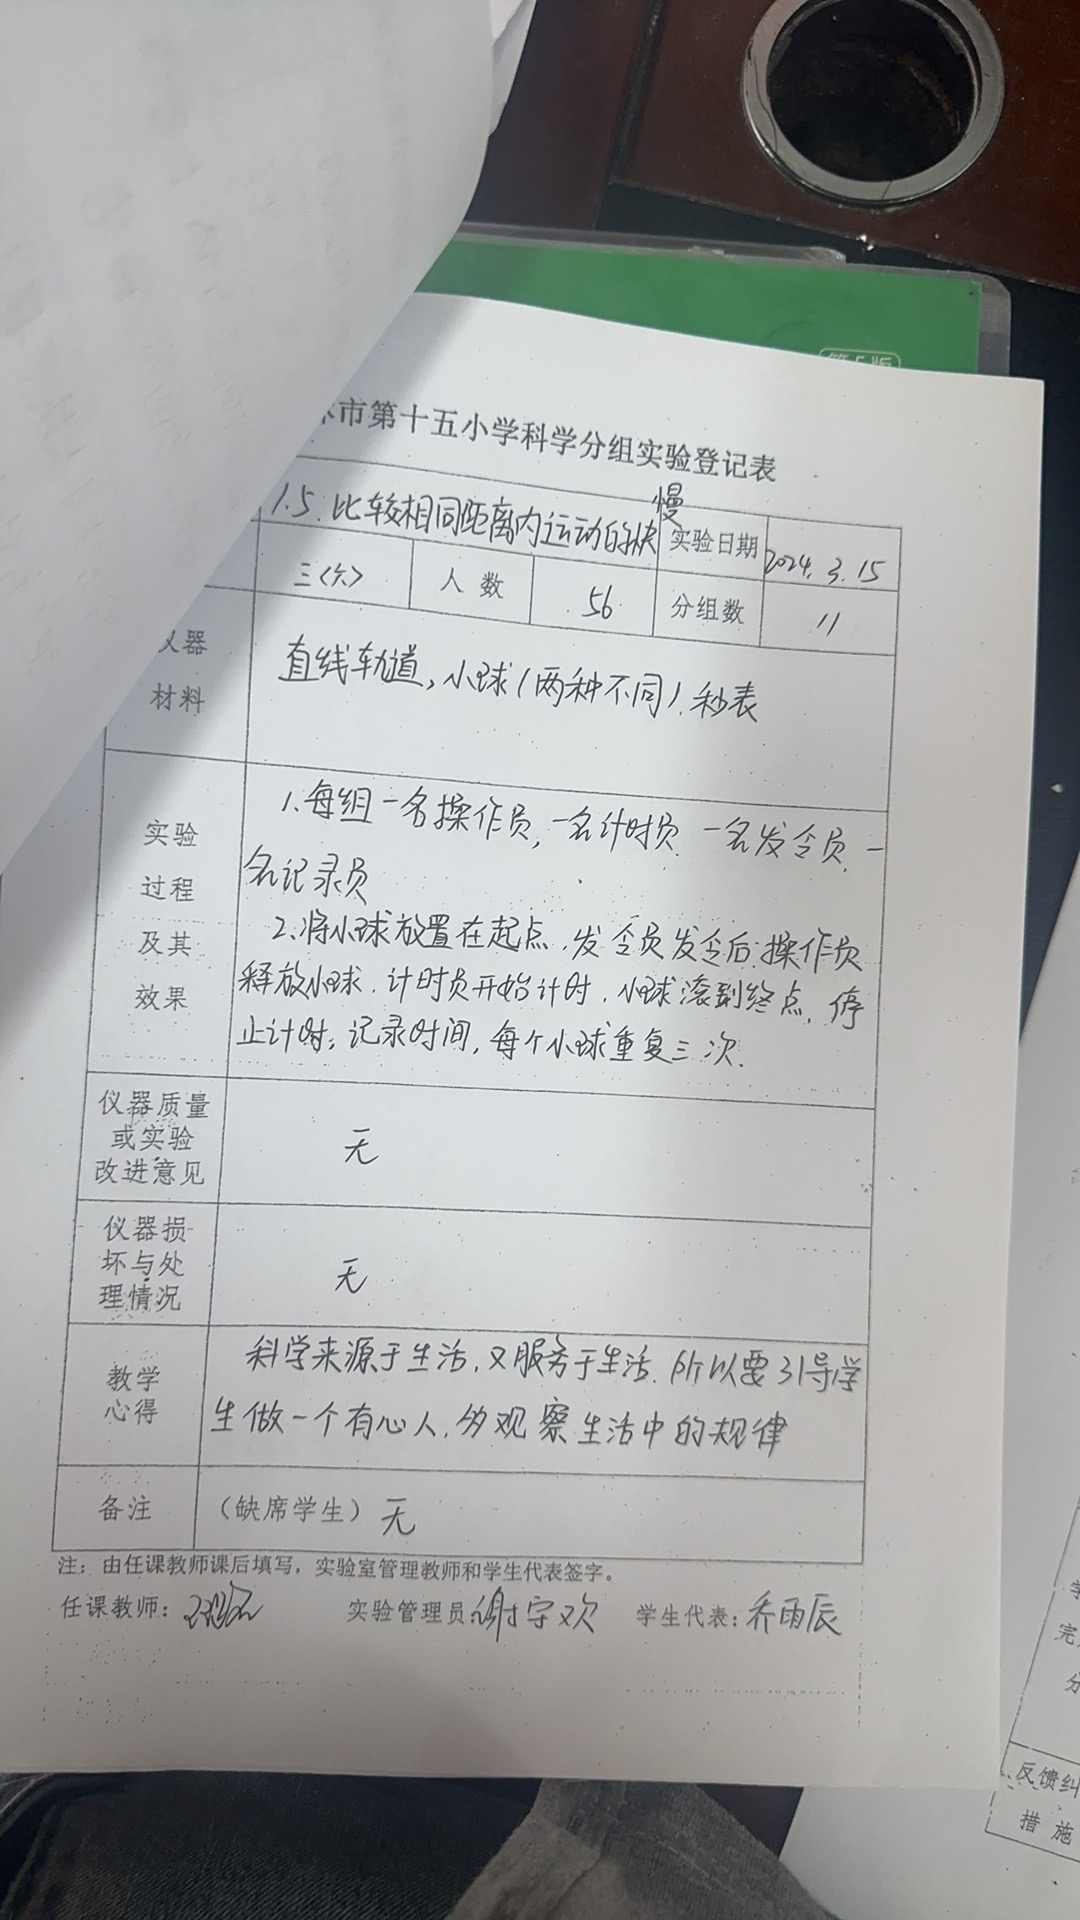 第5版
市第十五小学科学分组实验登记表
1.5.比较相同距离内运动的快慢
实验日期
2024.3.15
三<六>
人数
56
分组数
11
仪器
材料
直线轨道,小球(两种不同).秒表
实验
过程
及其
效果
1.每组一名操作员,一名计时员.一名发令员.一
名记录员
2.将小球放置在起点.发令员发令后.操作员
释放小球.计时员开始计时.小球滚到终点.停
止计时.记录时间,每个小球重复三次.
仪器质量
或实验
改进意见
无
仪器损
坏与处
理情况
无
教学
心得
科学来源于生活.又服务于生活.所以要引导学
生做一个有心人.多观察生活中的规律
备注
(缺席学生)无
注:由任课教师课后填写,实验室管理教师和学生代表签字。
任课教师:
实验管理员:谢字欢
学生代表:乔雨辰
反馈纠
措施